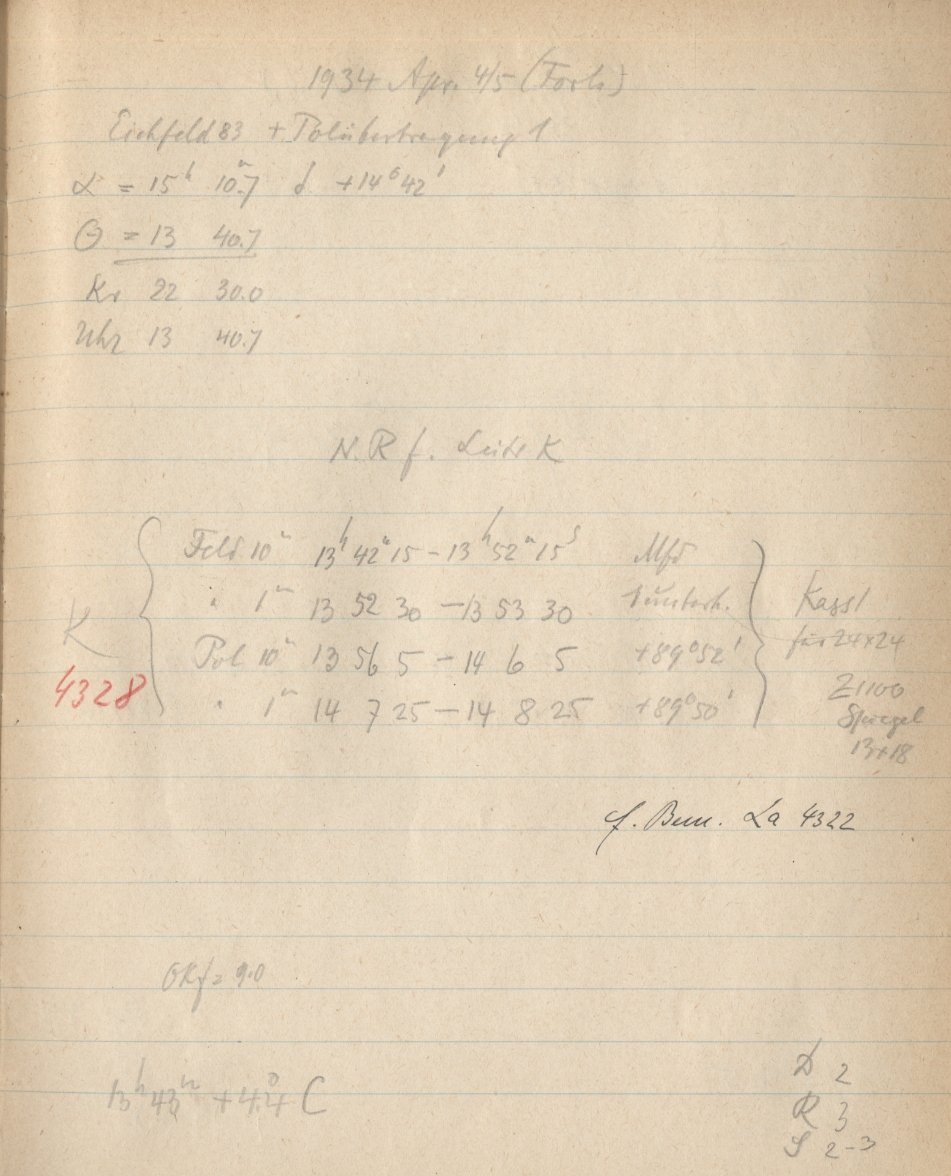 1934 Apr. 4/5 (Forts)
Eichfeld 83 + Polübertragung 1
α = 15ʰ 10ᵐ.7 δ +14°42'
Θ = 13 40.7
Kr 22 30.0
Uhr 13 40.7
N. R f. K
Feld 10ᵐ 13ʰ 42ᵐ 15 – 13ʰ 52ᵐ 15ˢ
" 1ᵐ 13 52 30 – 13 53 30
Pol 10ᵐ 13 56 5 – 14 6 5 +89°52'
" 1ᵐ 14 7 25 – 14 8 25 +89°50'
K
4328
Kass 1
für 24×24
Z 1100
Spiegel
13×18
f. Bem. La 4322
OKf = 9.0
13ʰ 43ᵐ +4.°4 C
D 2
R 3
S 2-3